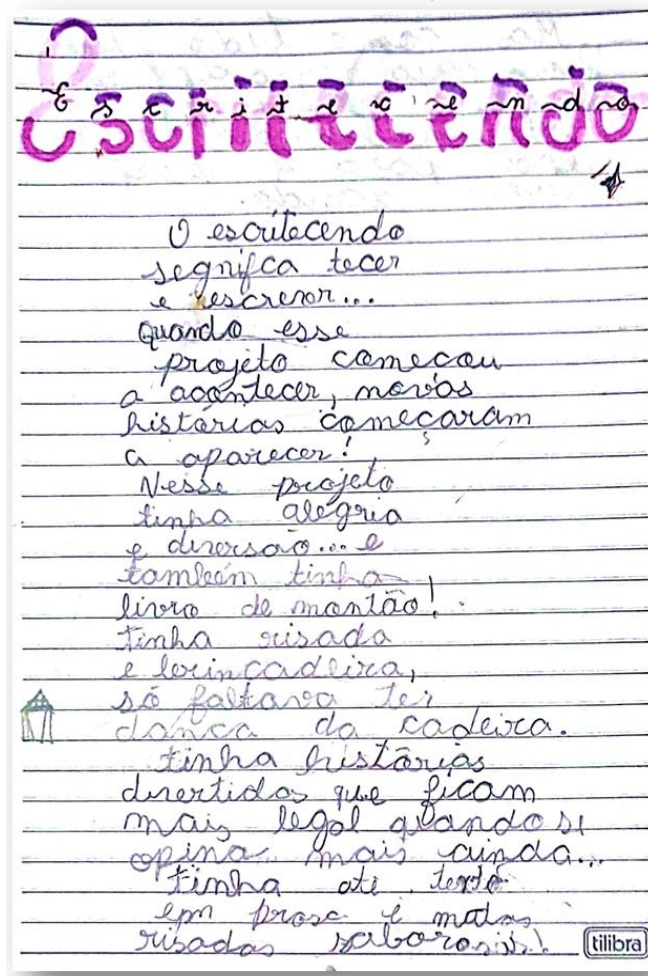 Escritecendo
O escritecendo
segnifca tecer
e escrever...
Quando esse
projeto começou
a acontecer, novas
histórias começaram
a aparecer!
Nesse projeto
tinha alegria
e diversão... e
também tinha
livro de montão!
tinha risada
e brincadeira,
só faltava ter
dança da cadeira.
tinha histórias
divertidas que ficam
mais legal quando se
opina mais ainda...
tinha até texto
em prosa e
risadas saborosas!
tilibra